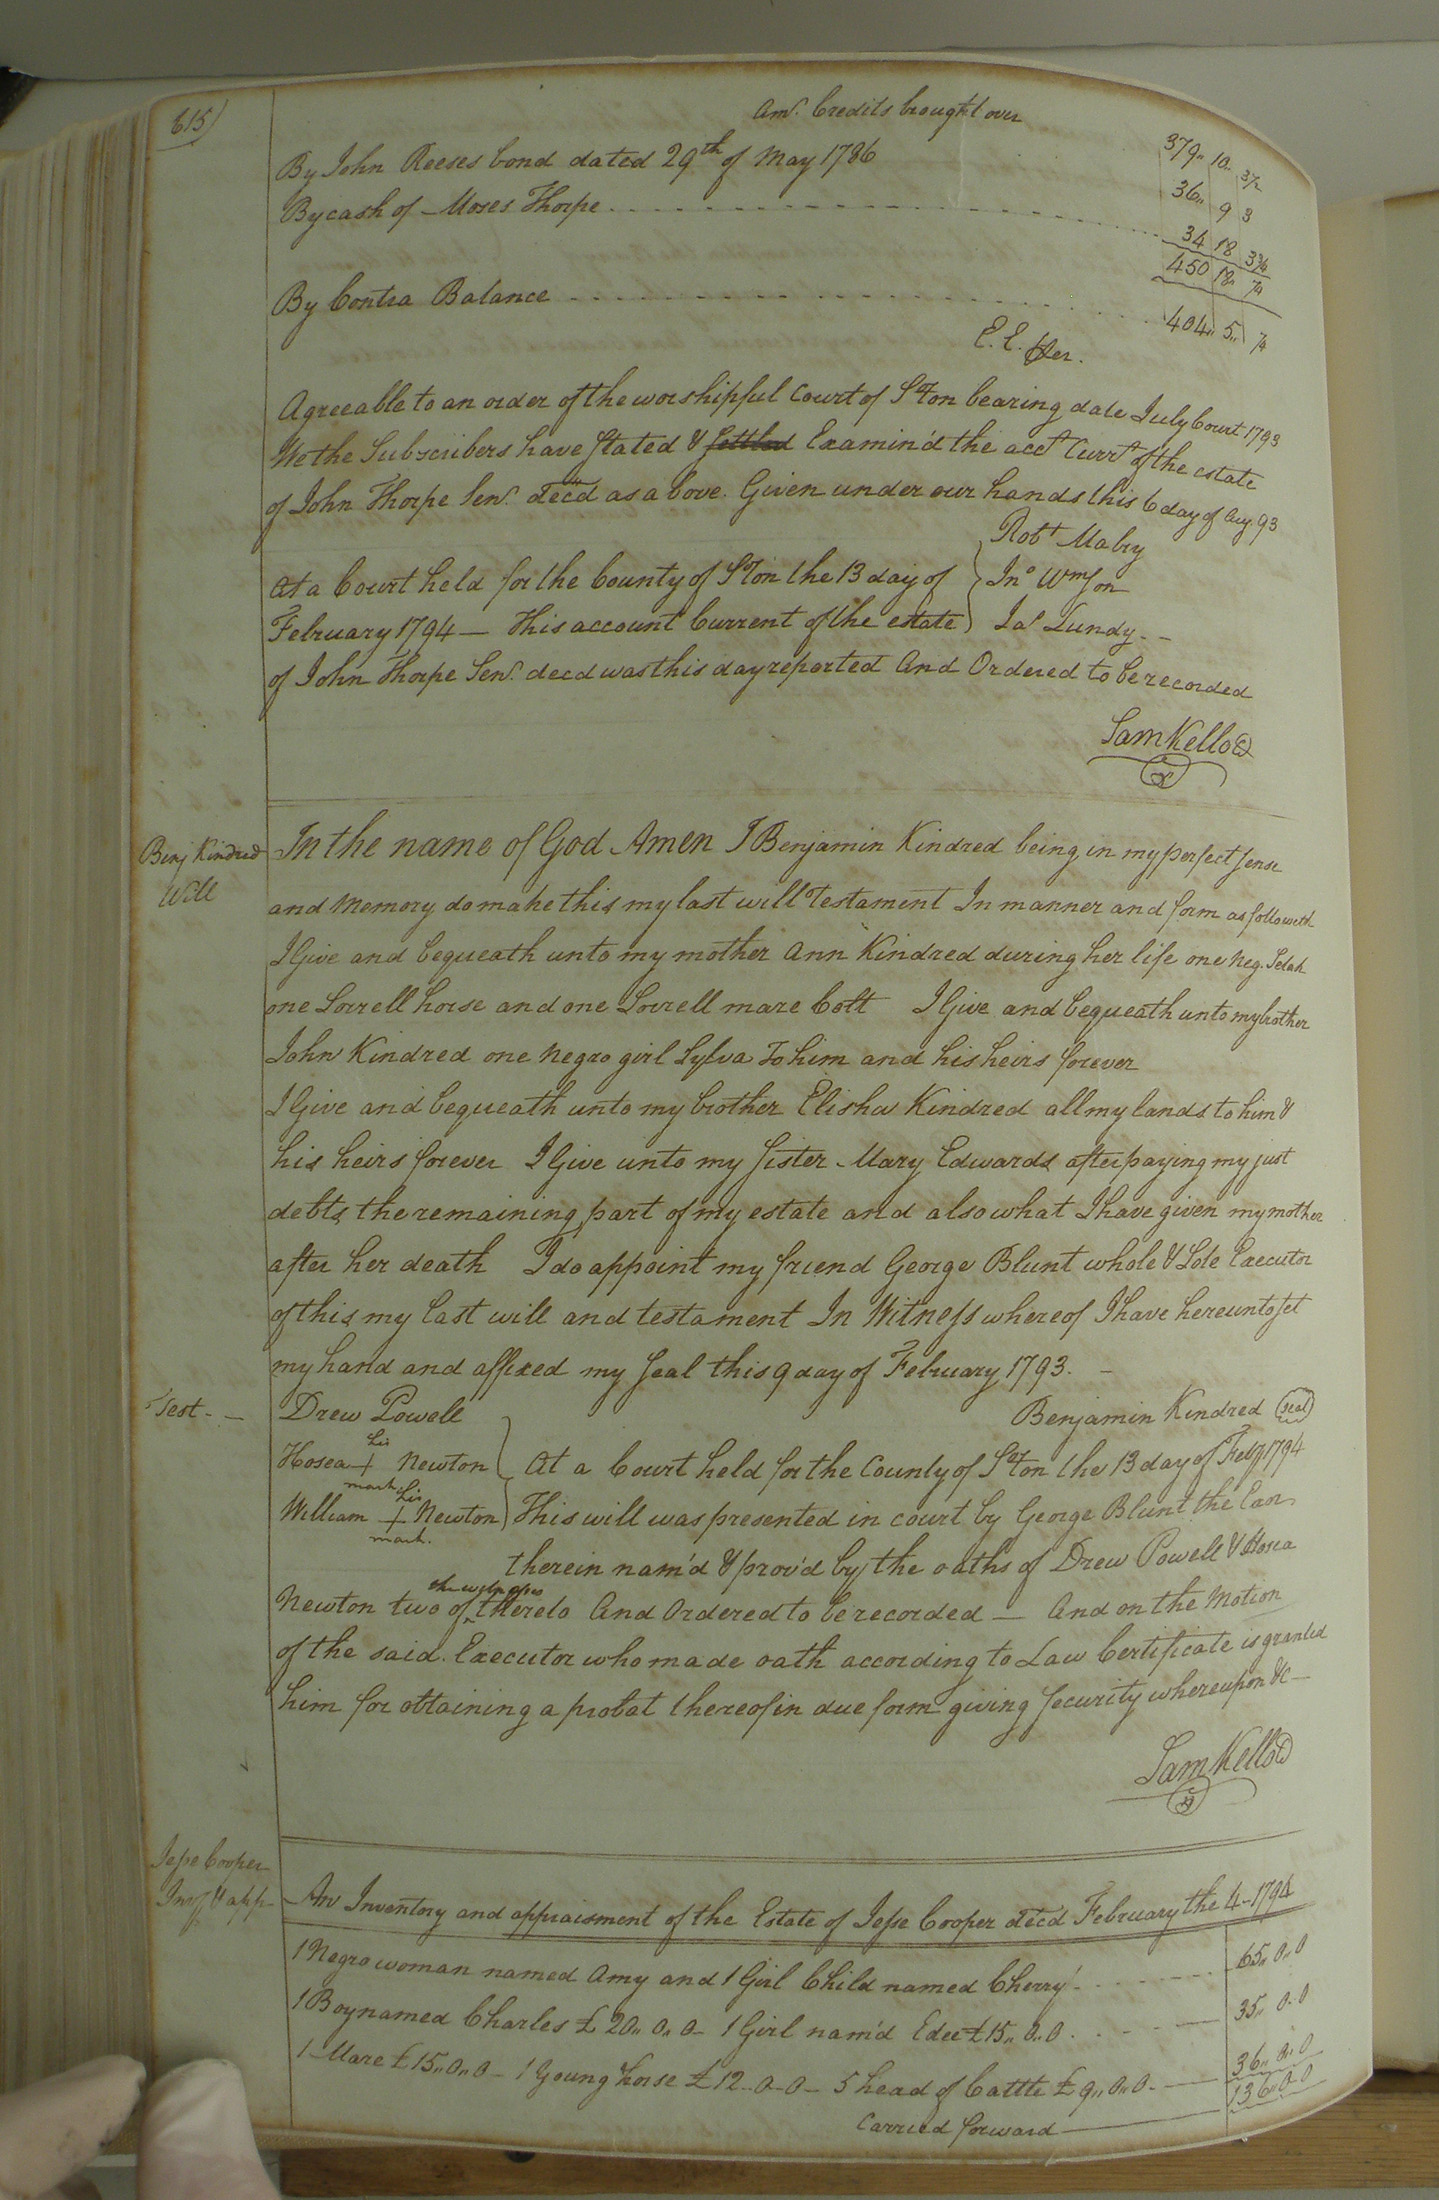 615)
Amt. Credits brought over 379,, 10,, 3 1/2
By John Reeses bond dated 29th of May 1786 36,, 9 3
By cash of Moses Thorpe 34 18 3 3/4
450 18,,
By Contra Balance 404,, 5,,
E. E. Per.
Agreeable to an order of the worshipful Court of S°ton bearing date July Court 1793
We the Subscribers have stated & settled Examin'd the acct. Currt. of the estate
of John Thorpe Senr. dec'd as above. Given under our hands this 6 day of Aug. 93
Robt Mabry
At a Court held for the County of S°ton the 13 day of } Jno Wmson
February 1794 — This account Current of the estate } Jas Lundy - -
of John Thorpe Senr. decd was this day reported And Ordered to be recorded
Sam Kello
Benj Kindred
Will
In the name of God Amen I Benjamin Kindred being in my perfect sense
and Memory do make this my last will Testament In manner and form as followeth
I Give and bequeath unto my mother Ann Kindred during her life one Neg. Selah
one Sorrell horse and one Sorrell mare Colt I Give and bequeath unto my brother
John Kindred one Negro girl Sylva To him and his heirs forever
I Give and bequeath unto my brother Elisha Kindred all my lands to him &
his heirs forever I Give unto my sister Mary Edwards after paying my just
debts the remaining part of my estate and also what I have given my mother
after her death I do appoint my friend George Blunt whole & Sole Executor
of this my last will and testament In Witness whereof I have hereunto set
my hand and affixed my seal this 9 day of February 1793. —
Test - - Drew Powell
Benjamin Kindred (seal)
his
Hosea + Newton
mark.
At a Court held for the County of S°ton the 13 day of Feby 1794
his
William + Newton
mark.
This will was presented in court by George Blunt the Exor
therein nam'd & prov'd by the oaths of Drew Powell & Hosea
Newton two of the witnesses thereto And Ordered to be recorded — And on the Motion
of the said Executor who made oath according to Law Certificate is granted
him for obtaining a probat thereof in due form giving security whereupon &c —
Sam Kello
Jesse Cooper
Invy & app
An Inventory and appraisment of the Estate of Jesse Cooper dec'd February the 4 - 1794
1 Negro woman named Amy and 1 Girl Child named Cherry - 65,, 0,, 0
1 Boy named Charles £ 20,, 0,, 0 - 1 Girl nam'd Edee £ 15,, 0,, 0 35,, 0 - 0
1 Mare £ 15,, 0,, 0 - 1 Young horse £ 12 - 0 - 0 - 5 head of Cattle £ 9,, 0,, 0 - 36,, 0,, 0
Carried forward 136,, 0 - 0